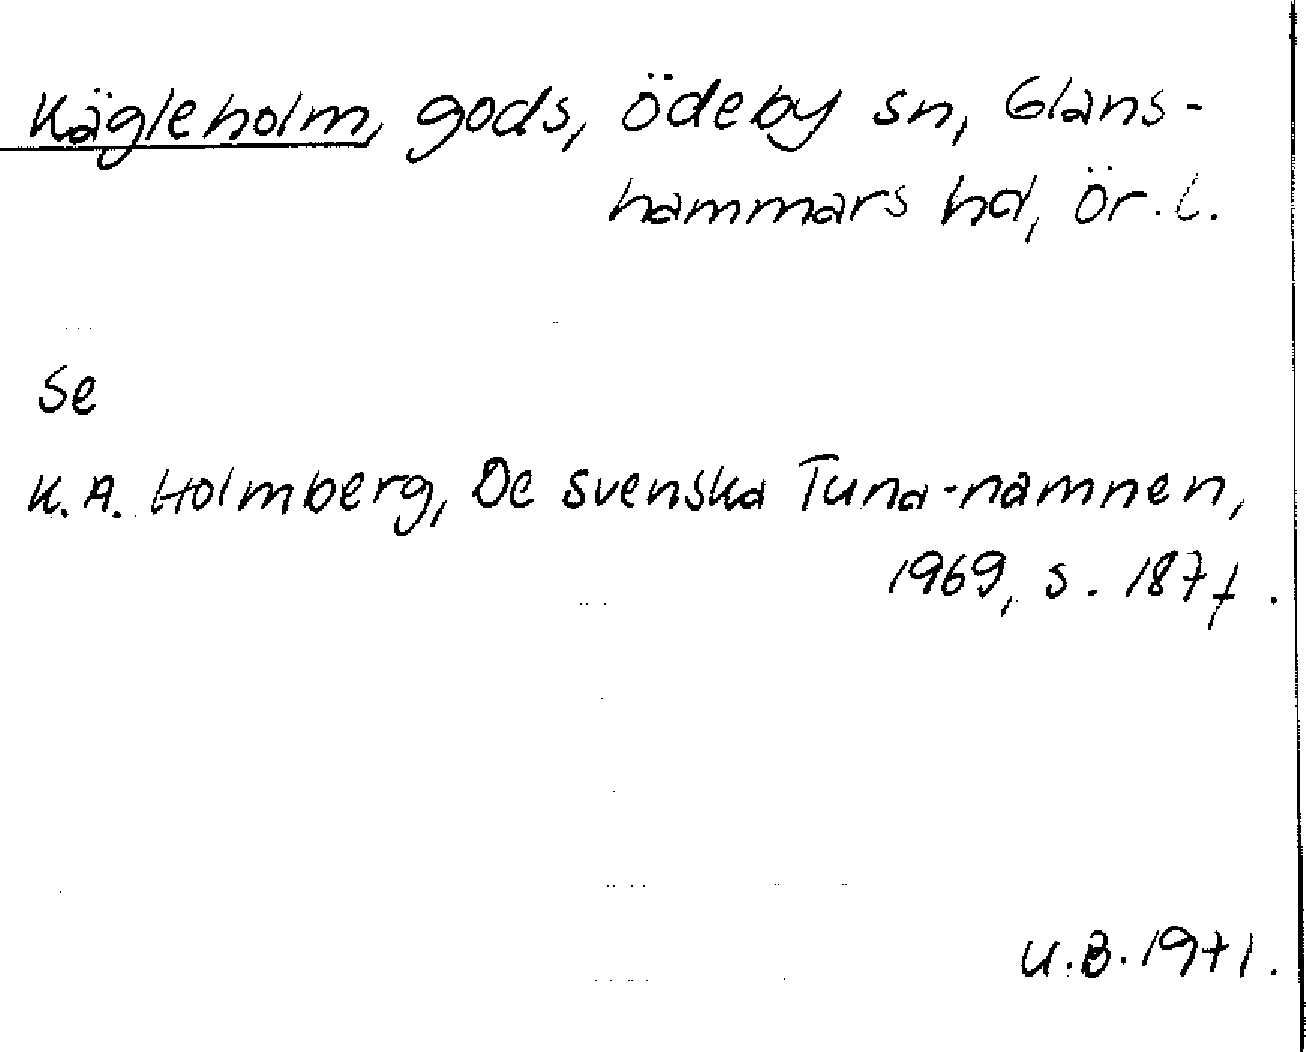 Kägleholm, gods, ödeby sn, Glans-
hammars hd, ör. l.
Se
K.A. Holmberg, De svenska Tuna-namnen,
1969, s. 187f.
U.B. 1971.